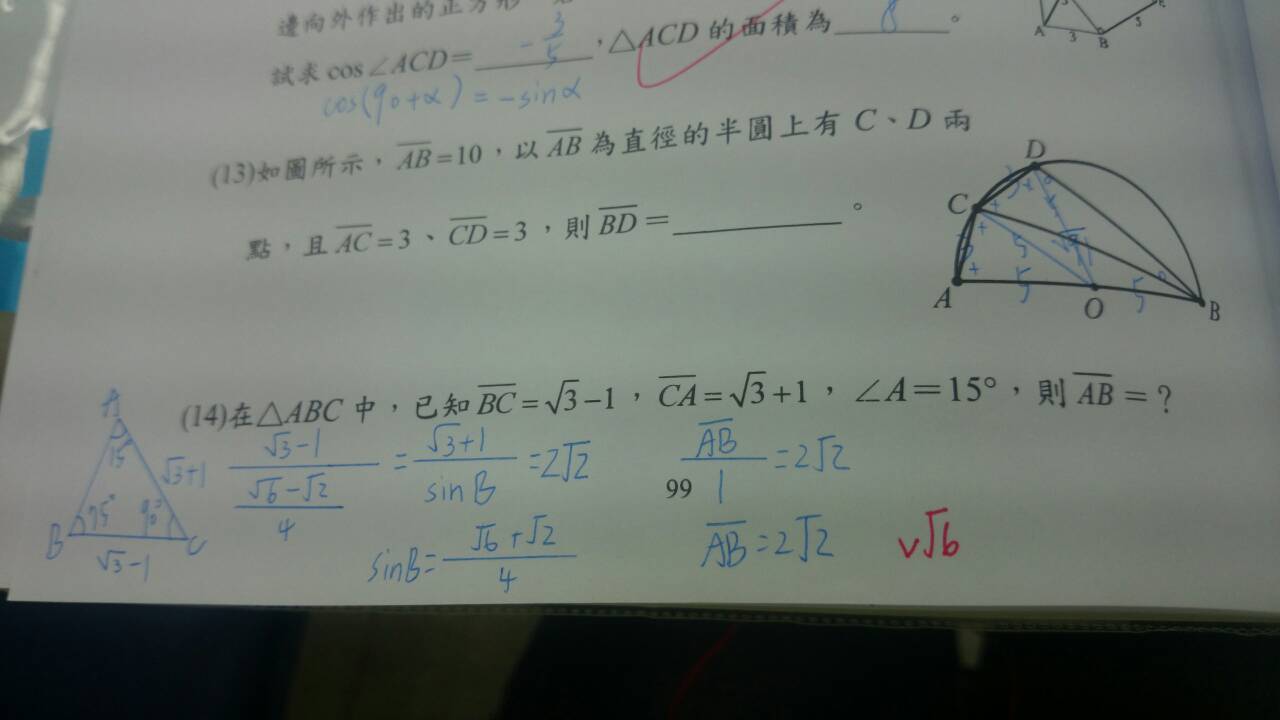 邊向外作出的正方形
試求 cos∠ACD= -3/5 ,△ACD 的面積為 8 。
cos(90+α) = -sinα
(13)如圖所示,AB=10,以 AB 為直徑的半圓上有 C、D 兩
點,且 AC=3、CD=3,則 BD=________。
A 3 B 5
D
C
3 + ° 5 √91 5 3 + + °
A 5 O 5 B
(14)在△ABC 中,已知 BC=√3-1,CA=√3+1,∠A=15°,則 AB=?
A 15 √3+1 B 75° 90° C √3-1
(√3-1)/((√6-√2)/4) = (√3+1)/sinB = 2√2
AB/1 = 2√2
99
sinB= (√6+√2)/4
AB=2√2
√√6